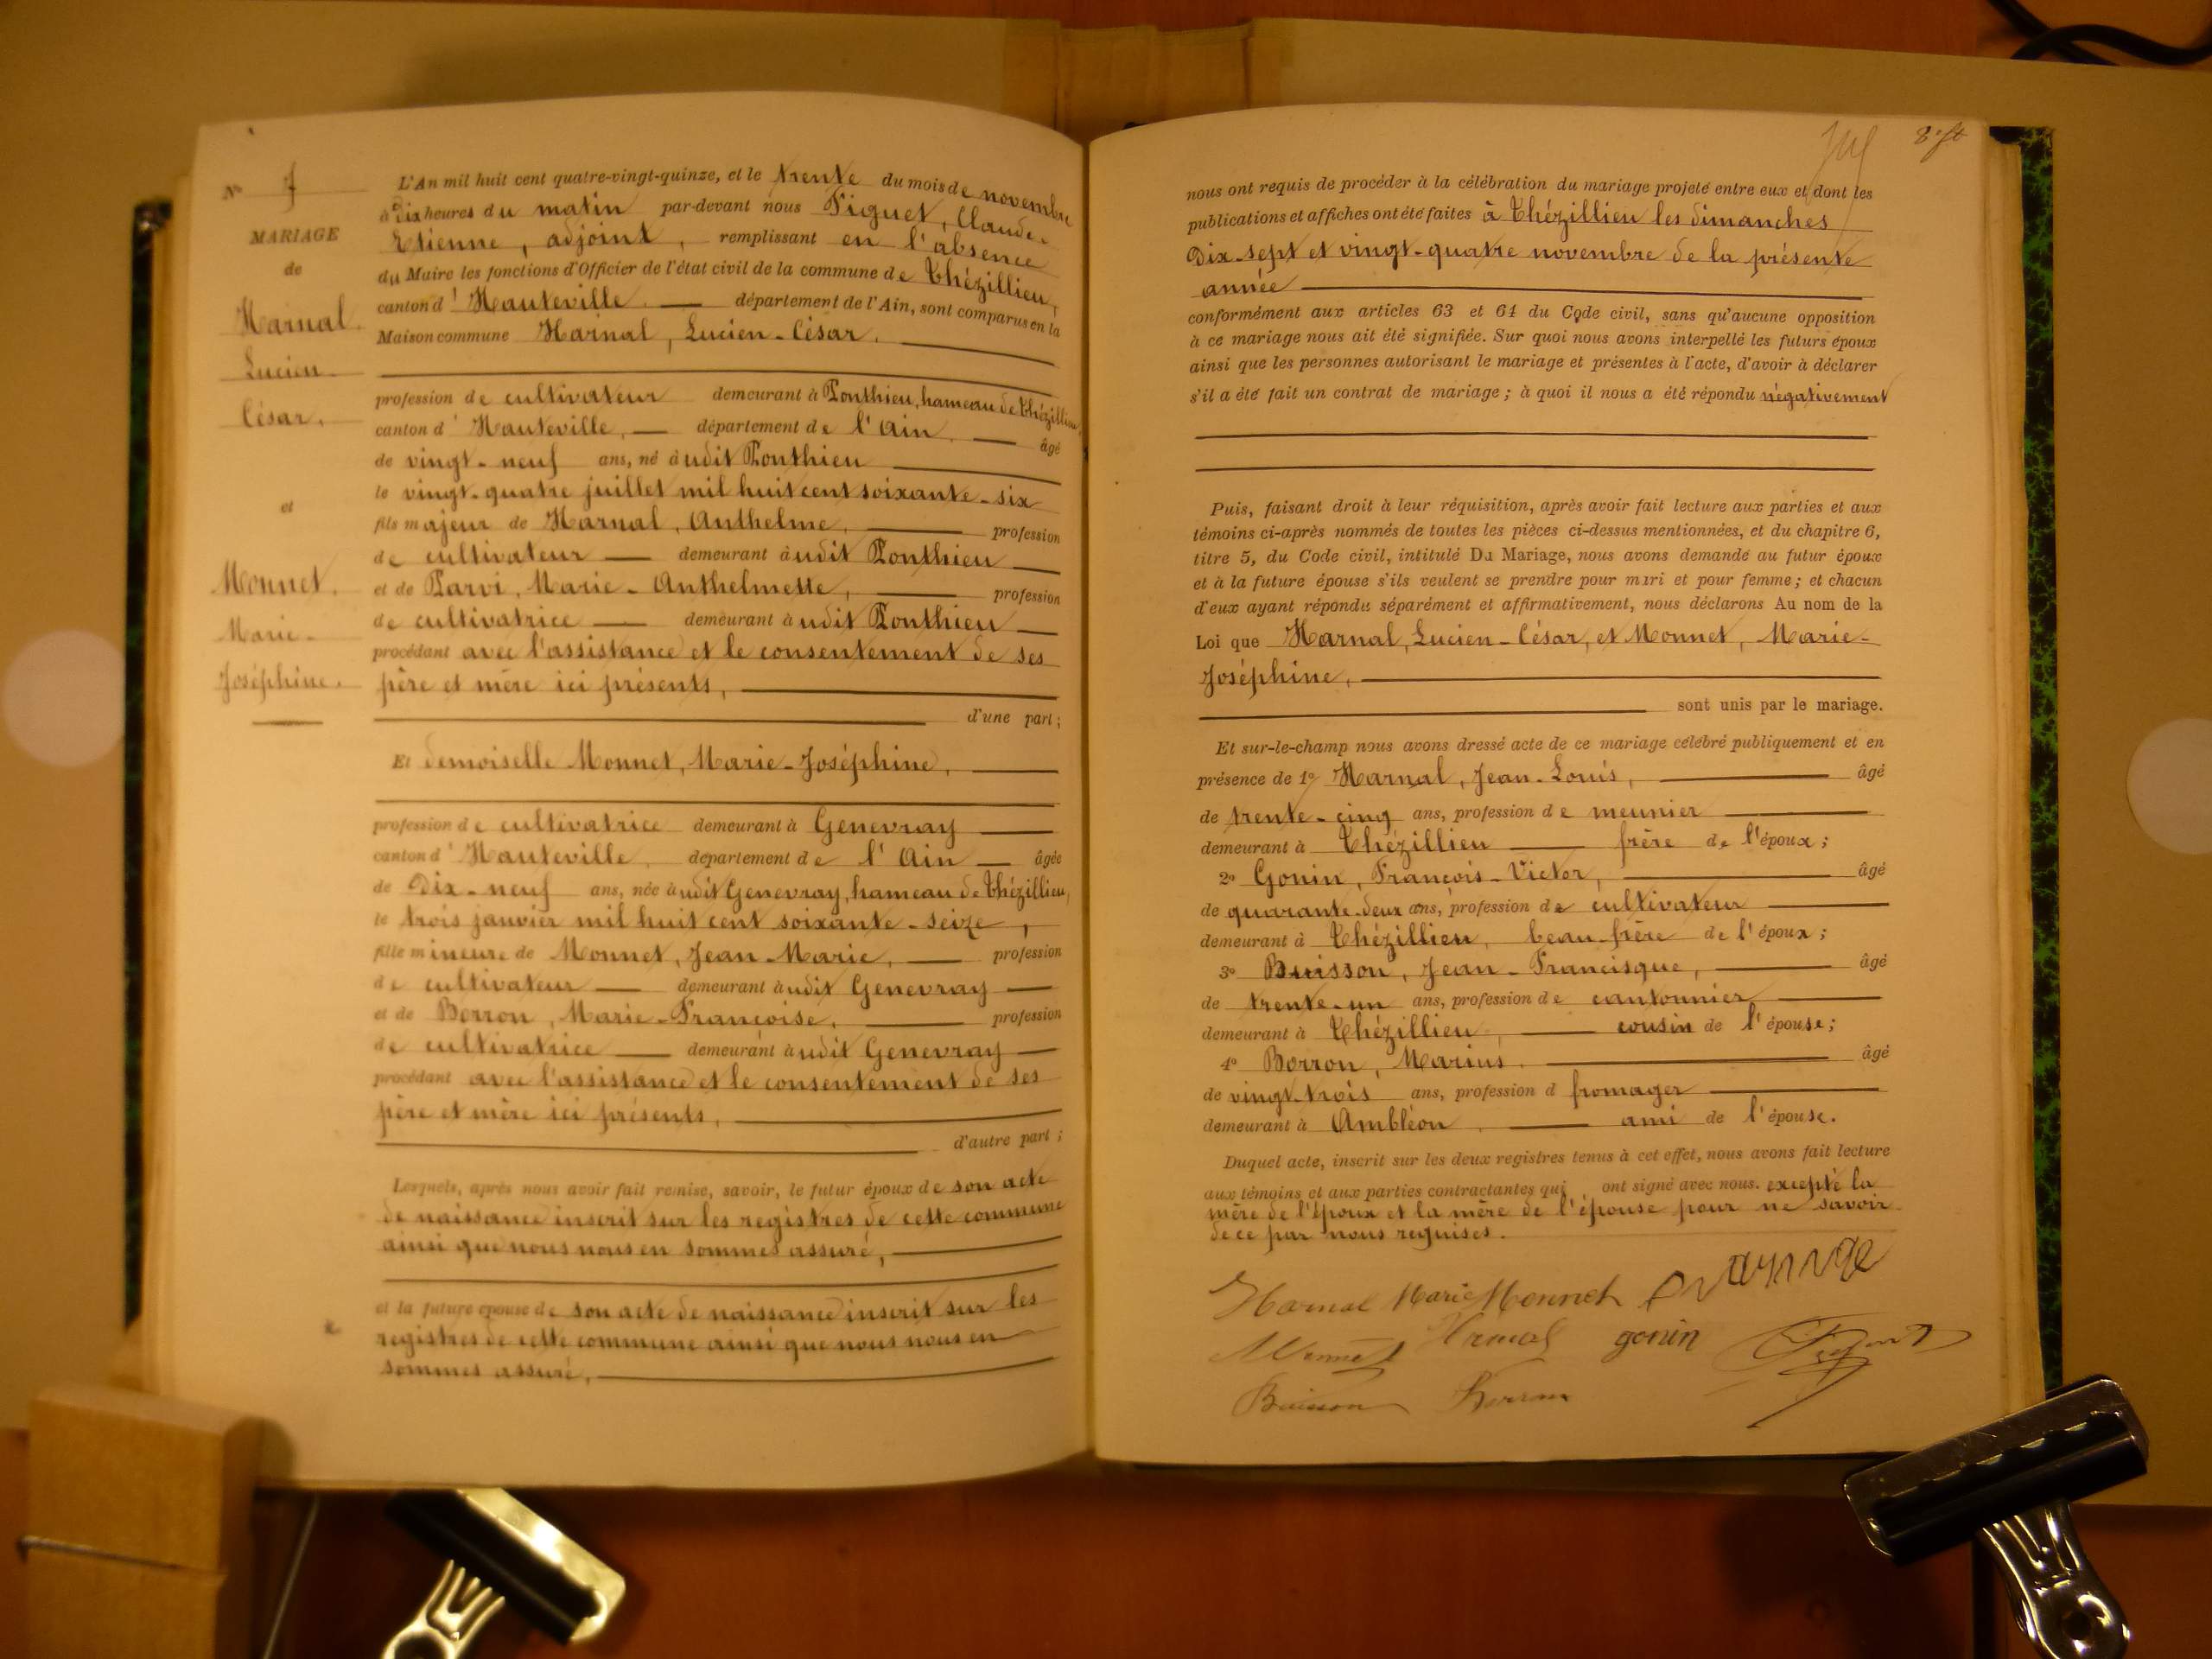 N° 7
MARIAGE
de
Harnal
Lucien
César,
et
Monnet,
Marie-
Joséphine.
L'An mil huit cent quatre-vingt-quinze, et le trente du mois de novembre
à dix heures du matin par-devant nous Figuet, Claude-
Etienne, adjoint, remplissant en l'absence
du Maire les fonctions d'Officier de l'état civil de la commune de Thézillieu,
canton d'Hauteville, département de l'Ain, sont comparus en la
Maison commune Harnal, Lucien-César,
profession de cultivateur demeurant à Ponthieu, hameau de Thézillieu,
canton d'Hauteville, département de l'Ain, âgé
de vingt-neuf ans, né audit Ponthieu
le vingt-quatre juillet mil huit cent soixante-six
fils majeur de Harnal, Anthelme, profession
de cultivateur demeurant audit Ponthieu
et de Parvi, Marie-Anthelmette, profession
de cultivatrice demeurant audit Ponthieu
procédant avec l'assistance et le consentement de ses
père et mère ici présents,
d'une part;
Et demoiselle Monnet, Marie-Joséphine,
profession de cultivatrice demeurant à Genevray
canton d'Hauteville, département de l'Ain âgée
de Dix-neuf ans, née audit Genevray, hameau de Thézillieu,
le trois janvier mil huit cent soixante-seize,
fille mineure de Monnet, Jean-Marie, profession
de cultivateur demeurant audit Genevray
et de Borron, Marie-Françoise, profession
de cultivatrice demeurant audit Genevray
procédant avec l'assistance et le consentement de ses
père et mère ici présents,
d'autre part;
Lesquels, après nous avoir fait remise, savoir, le futur époux de son acte
de naissance inscrit sur les registres de cette commune
ainsi que nous nous en sommes assuré,
et la future épouse de son acte de naissance inscrit sur les
registres de cette commune ainsi que nous nous en
sommes assuré,
nous ont requis de procéder à la célébration du mariage projeté entre eux et dont les
publications et affiches ont été faites à Thézillieu les dimanches
Dix-sept et vingt-quatre novembre de la présente
année
conformément aux articles 63 et 64 du Code civil, sans qu'aucune opposition
à ce mariage nous ait été signifiée. Sur quoi nous avons interpellé les futurs époux
ainsi que les personnes autorisant le mariage et présentes à l'acte, d'avoir à déclarer
s'il a été fait un contrat de mariage; à quoi il nous a été répondu négativement
Puis, faisant droit à leur réquisition, après avoir fait lecture aux parties et aux
témoins ci-après nommés de toutes les pièces ci-dessus mentionnées, et du chapitre 6,
titre 5, du Code civil, intitulé Du Mariage, nous avons demandé au futur époux
et à la future épouse s'ils veulent se prendre pour mari et pour femme; et chacun
d'eux ayant répondu séparément et affirmativement, nous déclarons Au nom de la
Loi que Harnal, Lucien-César, et Monnet, Marie-
Joséphine,
sont unis par le mariage.
Et sur-le-champ nous avons dressé acte de ce mariage célébré publiquement et en
présence de 1° Harnal, Jean-Louis, âgé
de trente-cinq ans, profession de meunier
demeurant à Thézillieu frère de l'époux;
2° Gonin, François-Victor, âgé
de quarante-deux ans, profession de cultivateur
demeurant à Thézillieu, beau-frère de l'époux;
3° Buisson, Jean-Francisque, âgé
de trente-un ans, profession de cantonnier
demeurant à Thézillieu, cousin de l'épouse;
4° Borron, Marius. âgé
de vingt-trois ans, profession d fromager
demeurant à Ambléon, ami de l'épouse.
Duquel acte, inscrit sur les deux registres tenus à cet effet, nous avons fait lecture
aux témoins et aux parties contractantes qui ont signé avec nous. excepté la
mère de l'époux et la mère de l'épouse pour ne savoir
de ce par nous requises.
Harnal Marie Monnet
Monnet Harnal gonin
Buisson Borron